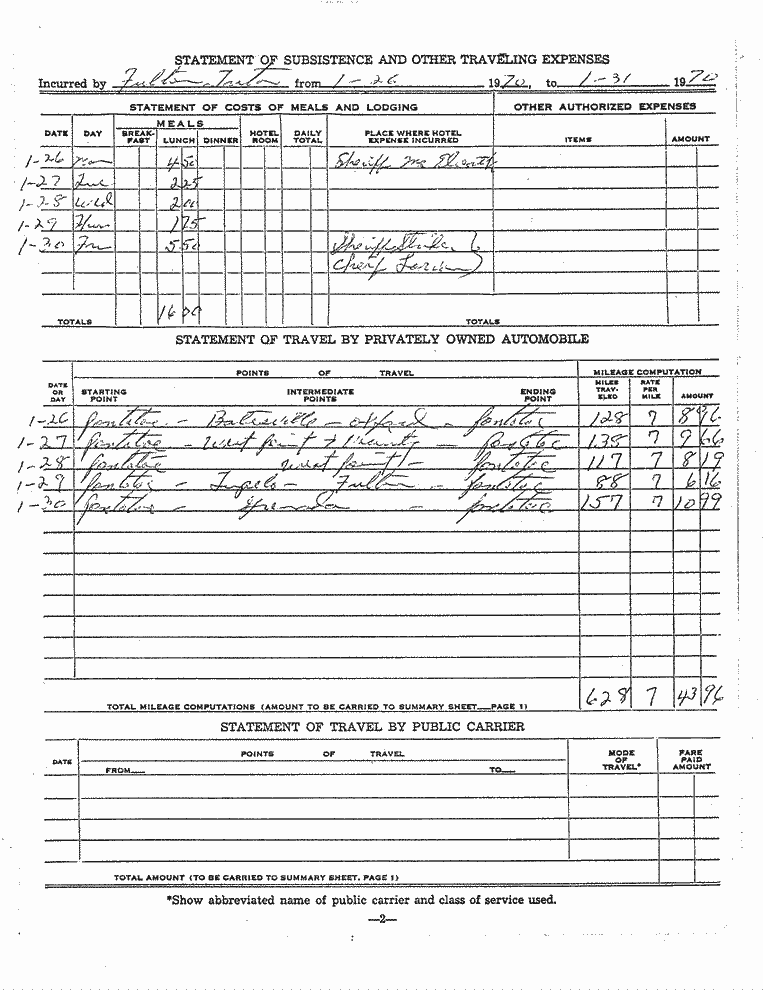 STATEMENT OF SUBSISTENCE AND OTHER TRAVELING EXPENSES
Incurred by Fulton from 1-26 1970, to 1-31 1970
STATEMENT OF COSTS OF MEALS AND LODGING OTHER AUTHORIZED EXPENSES
DATE DAY MEALS BREAK-FAST LUNCH DINNER HOTEL ROOM DAILY TOTAL PLACE WHERE HOTEL EXPENSE INCURRED ITEMS AMOUNT
1-26 Mon 4 50 Sheriff
1-27 Tue 2 25
1-28 Wed 2 00
1-29 Thur 1 75
1-30 Fri 5 50 Sheriff
Chief
16 00
TOTALS TOTALS
STATEMENT OF TRAVEL BY PRIVATELY OWNED AUTOMOBILE
DATE OR DAY POINTS OF TRAVEL MILEAGE COMPUTATION
STARTING POINT INTERMEDIATE POINTS ENDING POINT MILES TRAV-ELED RATE PER MILE AMOUNT
1-26 Pontotoc - Batesville - Oxford - Pontotoc 128 7 8 96
1-27 Pontotoc - West Point & - Pontotoc 138 7 9 66
1-28 Pontotoc West Point - Pontotoc 117 7 8 19
1-29 Pontotoc - Tupelo - Fulton - Pontotoc 88 7 6 16
1-30 Pontotoc - Grenada - Pontotoc 157 7 10 99
TOTAL MILEAGE COMPUTATIONS (AMOUNT TO BE CARRIED TO SUMMARY SHEET—PAGE 1) 628 7 43 96
STATEMENT OF TRAVEL BY PUBLIC CARRIER
DATE POINTS OF TRAVEL MODE OF TRAVEL* FARE PAID AMOUNT
FROM— TO—
TOTAL AMOUNT (TO BE CARRIED TO SUMMARY SHEET. PAGE 1)
*Show abbreviated name of public carrier and class of service used.
—2—